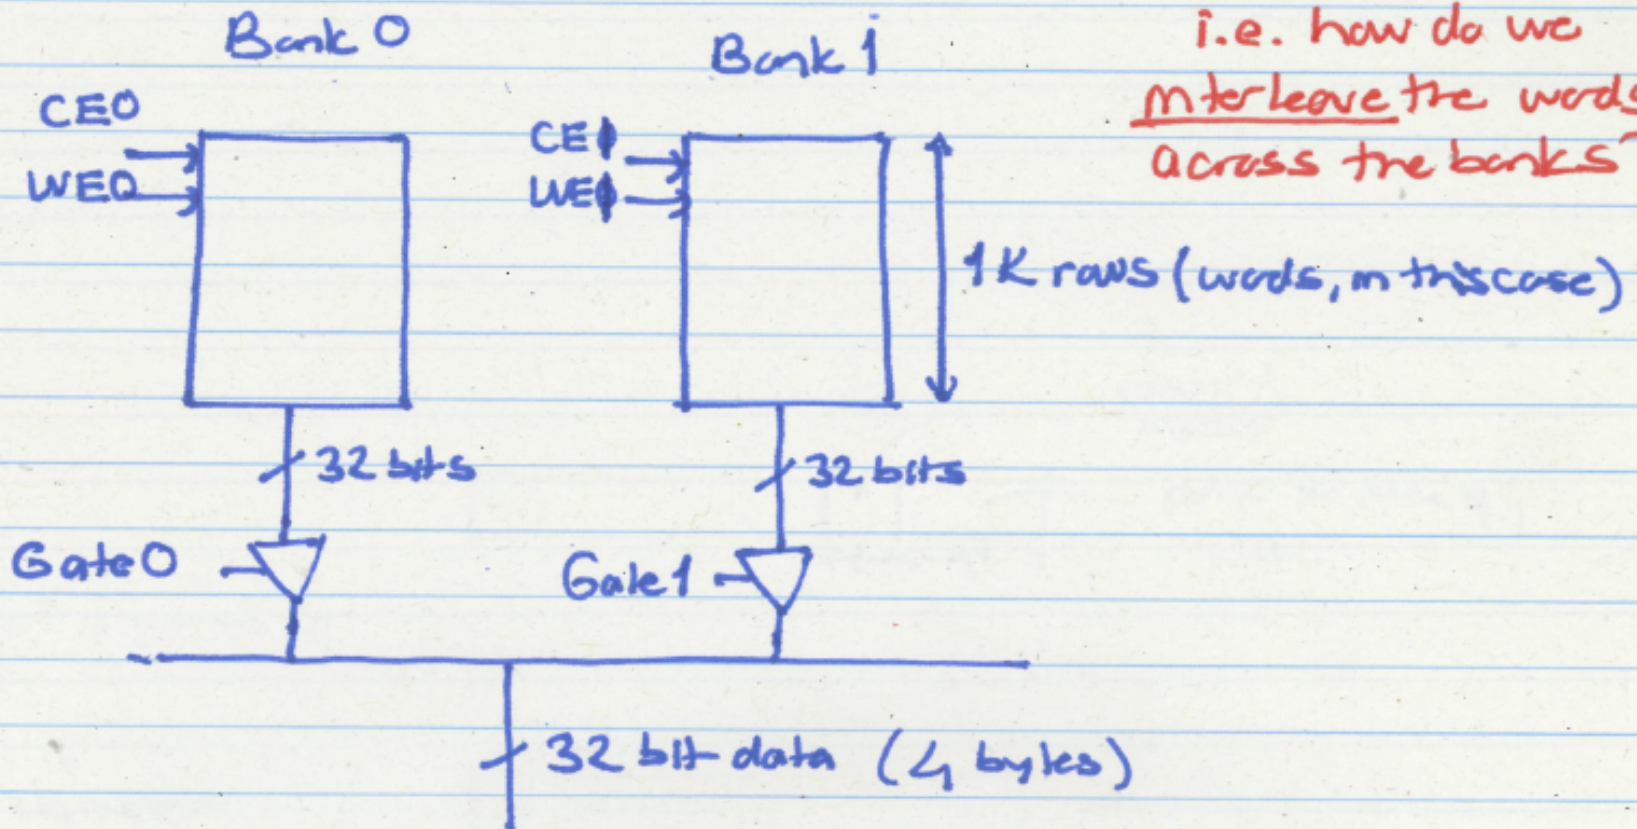 Bank 0
Bank 1
i.e. how do we
interleave the words
across the banks
CE0
WE0
CE1
WE1
1K rows (words, in this case)
32 bits
32 bits
Gate0
Gate1
32 bit data (4 bytes)